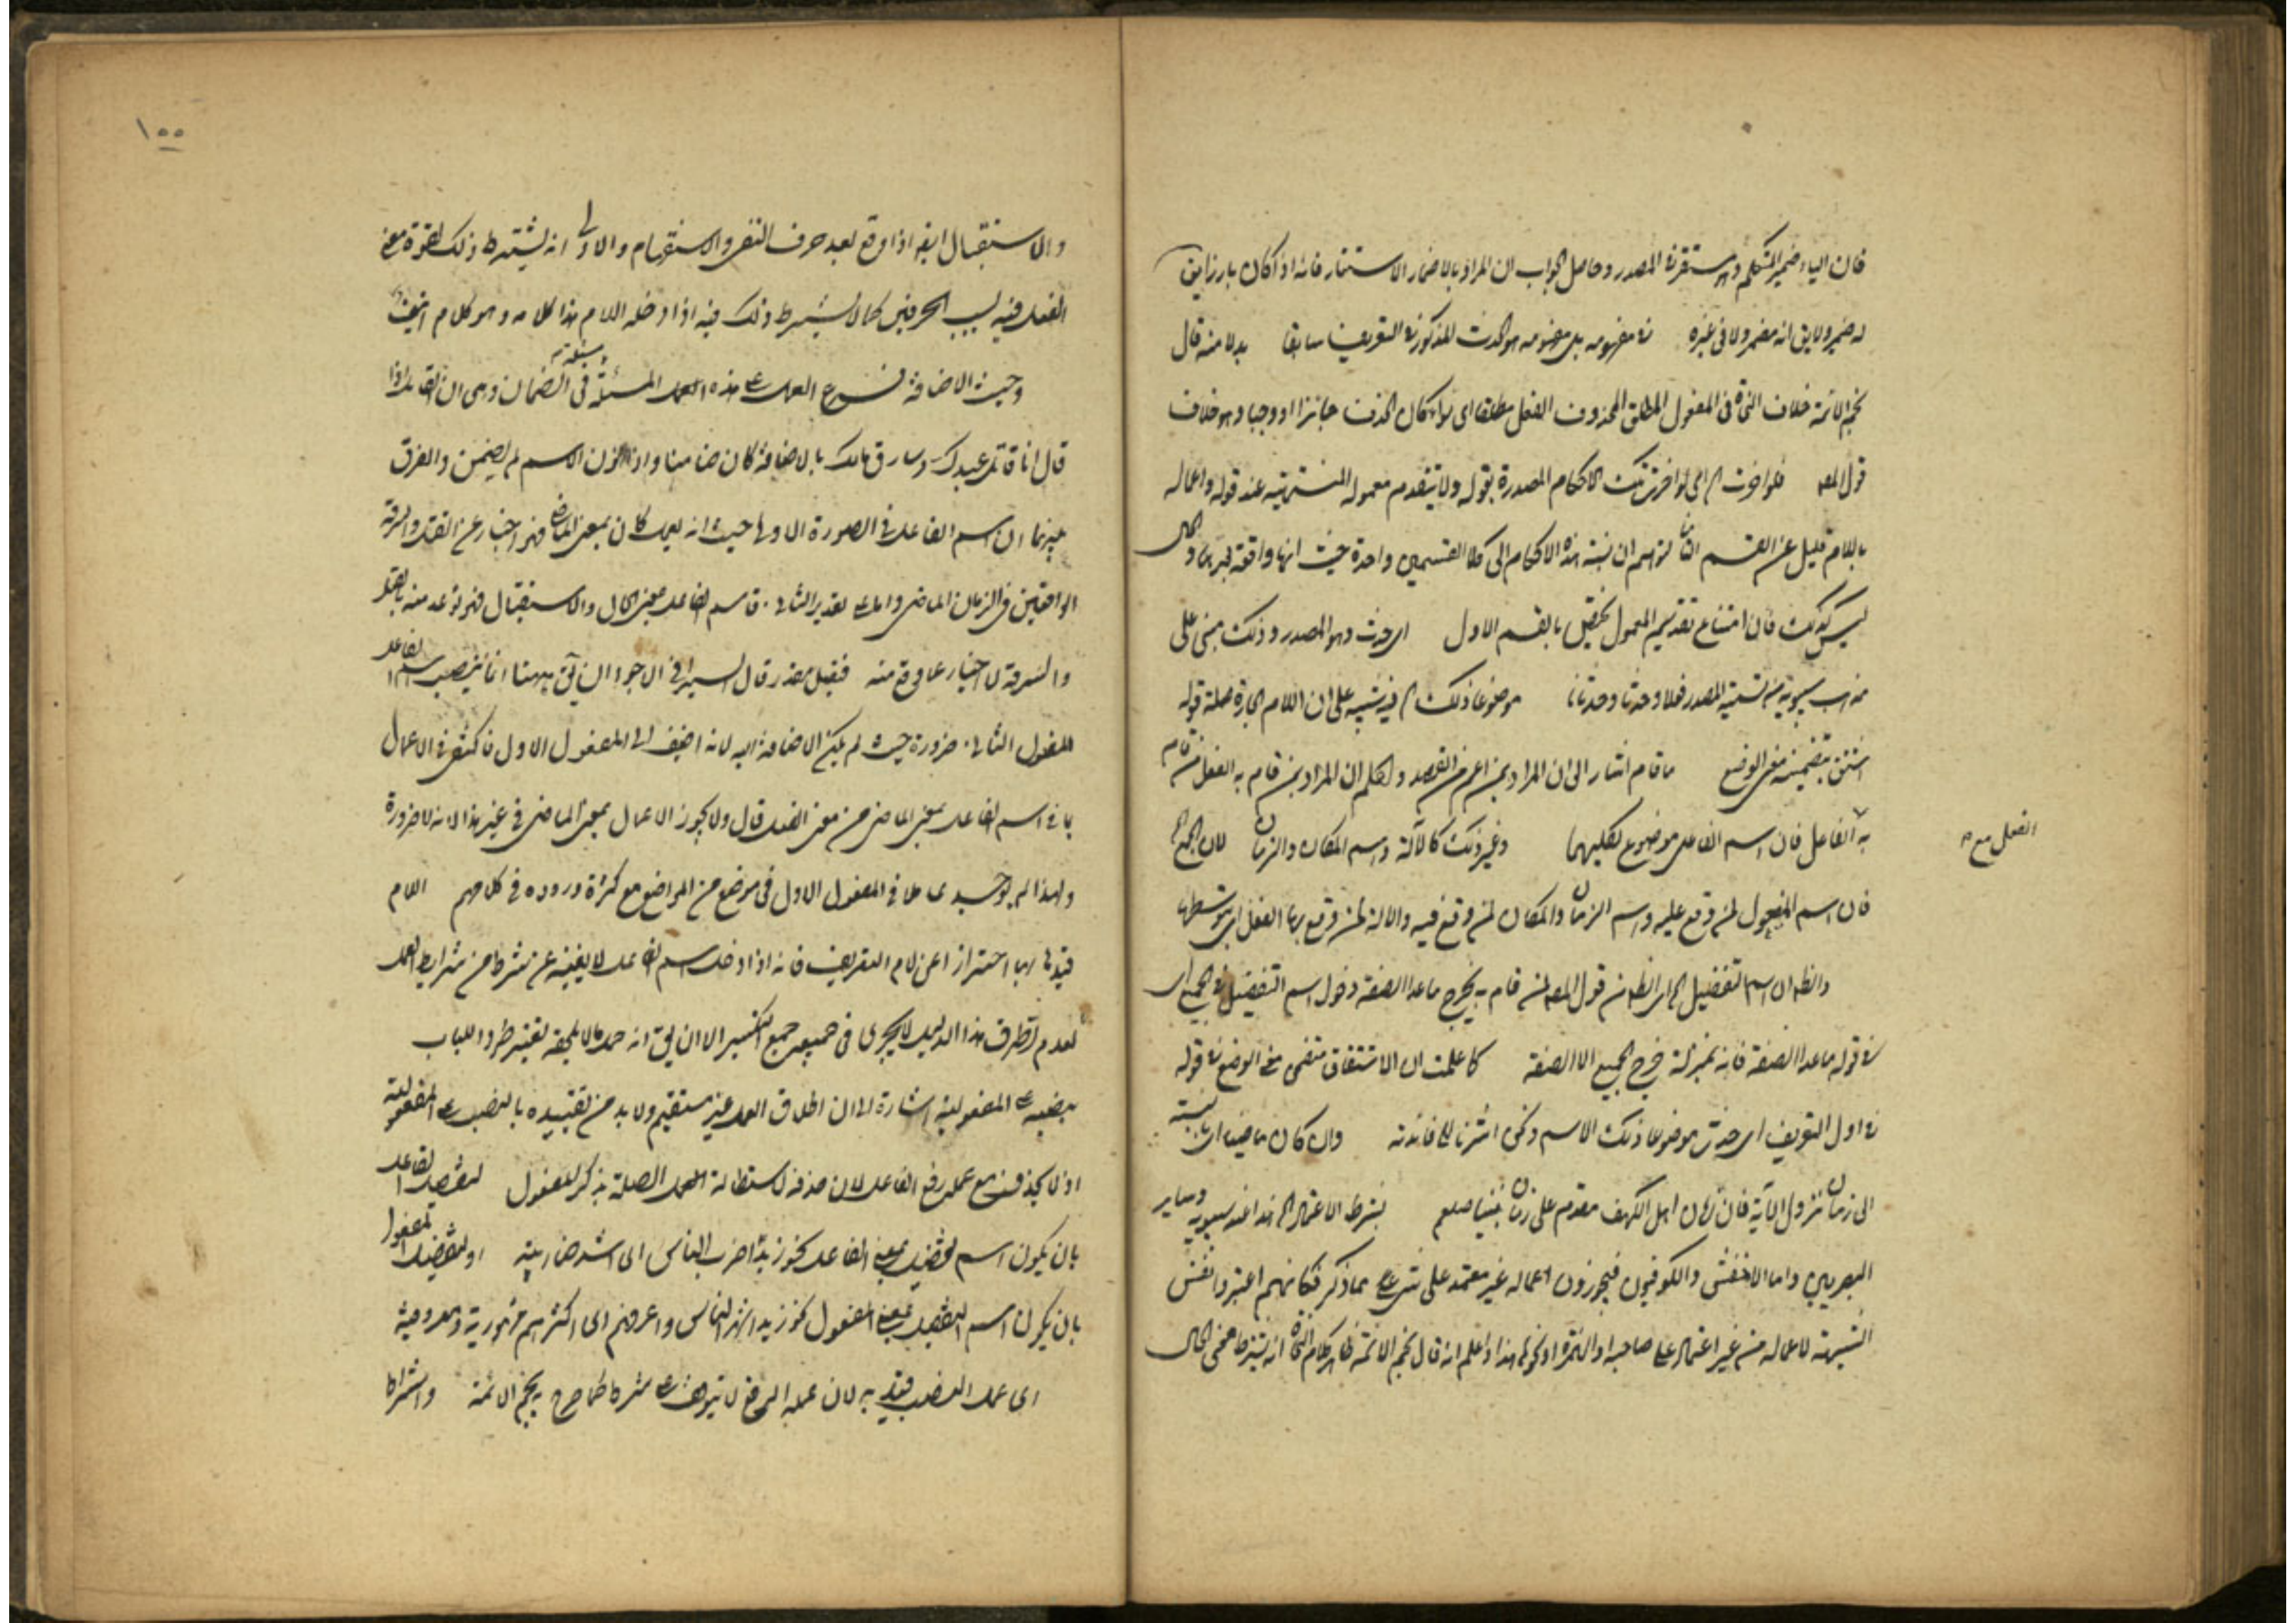 فان الياء ضمير المتكلم وهو مستتر في المصدر وحاصل الجواب ان المراد بالاضمار الاستتار فانه اذا كان بارزا يق
له ضمير ولا يق انه مضمر ولا في غيره في مفهومه بل مفهومه هو الحدث المذكور في التعريف سابقا بدلا منه قال
نجم الائمة خلاف النحاة في المفعول المطلق المحذوف الفعل مطلقا اى سواء كان الحذف جائزا او وجبا وهو خلاف
قول المصـ فلو اخرت اى لو اخرت تلك الاحكام المصدرة بقوله ولا يتقدم معموله المنتهية عند قوله واعماله
باللام قليل عن القسم الثانى لتوهم ان نسبة هذه الاحكام الى كلا القسمين واحدة حيث انها واقعة بعدهما والحال
ليس كذلك فان امتناع تقديم المعمول يختص بالقسم الاول اى حدث وهو المصدر وذلك مبنى على
مذهب سيبويه من تسمية المصدر فعلا وحدثا وحدثانا موضوعا ذلك فيه تنبيه على ان اللام الجارة صلة قوله
اشتق بتضمينه معنى الوضع ما قام اشار الى ان المراد بمن اعم من القصد والحكم ان المراد بمن قام به الفعل من قام
به الفاعل فان اسم الفاعل موضوع لكليهما وغير ذلك كالآلة واسم المكان والزمان لان الجميع
الفعل مع
فان اسم المفعول لمن وقع عليه واسم الزمان والمكان لمن وقع فيه والالة لمن وقع بها الفعل اى بتوسطها
والظ ان اسم التفضيل اى الظ من قول المصـ لمن قام به يخرج ماعدا الصفة دخول اسم التفضيل في الجميع اى
في قوله ماعدا الصفة فانه بمنزلة خرج الجميع الا الصفة كما علمت ان الاشتقاق متضمن معنى الوضع في قوله
في اول التعريف اى حدث موضوعا ذلك الاسم وذكر اشرنا الى فائدته وان كان ماضيا اى بالنسبة
الى زمان نزول الآية فان زمان اهل الكهف مقدم على زمان نبينا صلعم بشرط الاعتماد هذا عند سيبويه وساير
البصريين واما الاخفش والكوفيون فيجوزون اعماله غير معتمد على شيء مما ذكر فكانهم اعتبروا نفس
الشبهة لاعماله من غير اعتماد على صاحبه او الهمزة او نحوها هذا واعلم انه قال نجم الائمة ظاهر كلام النحاة انه يشترط معنى الحال
١٠٠
والاستقبال ايضا اذا وقع بعد حرف النفى والاستفهام والاولى انه لا يشترط ذلك لقوة معنى
الفعل فيه بسبب الحرفين كما لا يشترط ذلك فيه اذا دخله اللام هذا كلامه وهو كلام
وحيث الاضافة فرع العمل على هذه العمل المسئلة في الضمان وهى ان القائل اذا
قال انا قاتل عبدك وسارق مالك بالاضافة كان ضامنا واذا نون الاسم لم يضمن والفرق
بينهما ان اسم الفاعل في الصورة الاولى حيث انه ليعمل كان بمعنى الماضى فهو اخبار عن القتل والسرقة
الواقعين في الزمان الماضى واما على تقدير الثانى فاسم الفاعل بمعنى الحال والاستقبال فهو توعد منه بالقتل
والسرقة لا اخبار عما وقع منه فتقبل مقدر قال السيرافى الاجود ان يق ههنا انما ينصب اسم الفاعل
المفعول الثانى ضرورة حيث لم يمكن الاضافة اليه لانه اضيف الى المفعول الاول فاكتفى في الاعمال
بما في اسم الفاعل بمعنى الماضى من معنى الفعل قال ولا يجوز الاعمال بمعنى الماضى في غير هذا لانه لا ضرورة
ولهذا لم يوجد عاملا في المفعول الاول في موضع من المواضع مع كثرة وروده في كلامهم اللام
قيدها بها احترازا عن لام التعريف فانه اذا دخلت اسم الفاعل لا يغنيه عن شرط من شرايط العمل
لعدم تطرق هذا الدليل لا يجرى في جميع جمع التكسير الا ان يق انه حمل ما لا يلحقه تغيير طردا للباب
بنصبه على المفعولية اشارة الى ان اطلاق العمل غير مستقيم ولا بد من تقييده بالنصب على المفعولية
اذ لا يحذف مع عمله رفع الفاعل لان حذفه لاستطالة الصلة بذكر المفعول لتفضيل الفاعل
بان يكون اسم التفضيل بمعنى الفاعل نحو زيد اضرب الناس اى اشد ضاربية او لتفضيل المفعول
بان يكون اسم التفضيل بمعنى المفعول نحو زيد اشهر الناس واعرفهم اى اكثرهم مشهورية ومعروفية
اى عمل النصب قيد به لان عمله الرفع لا يتوقف على شرط كما صرح به نجم الائمة واشتراط